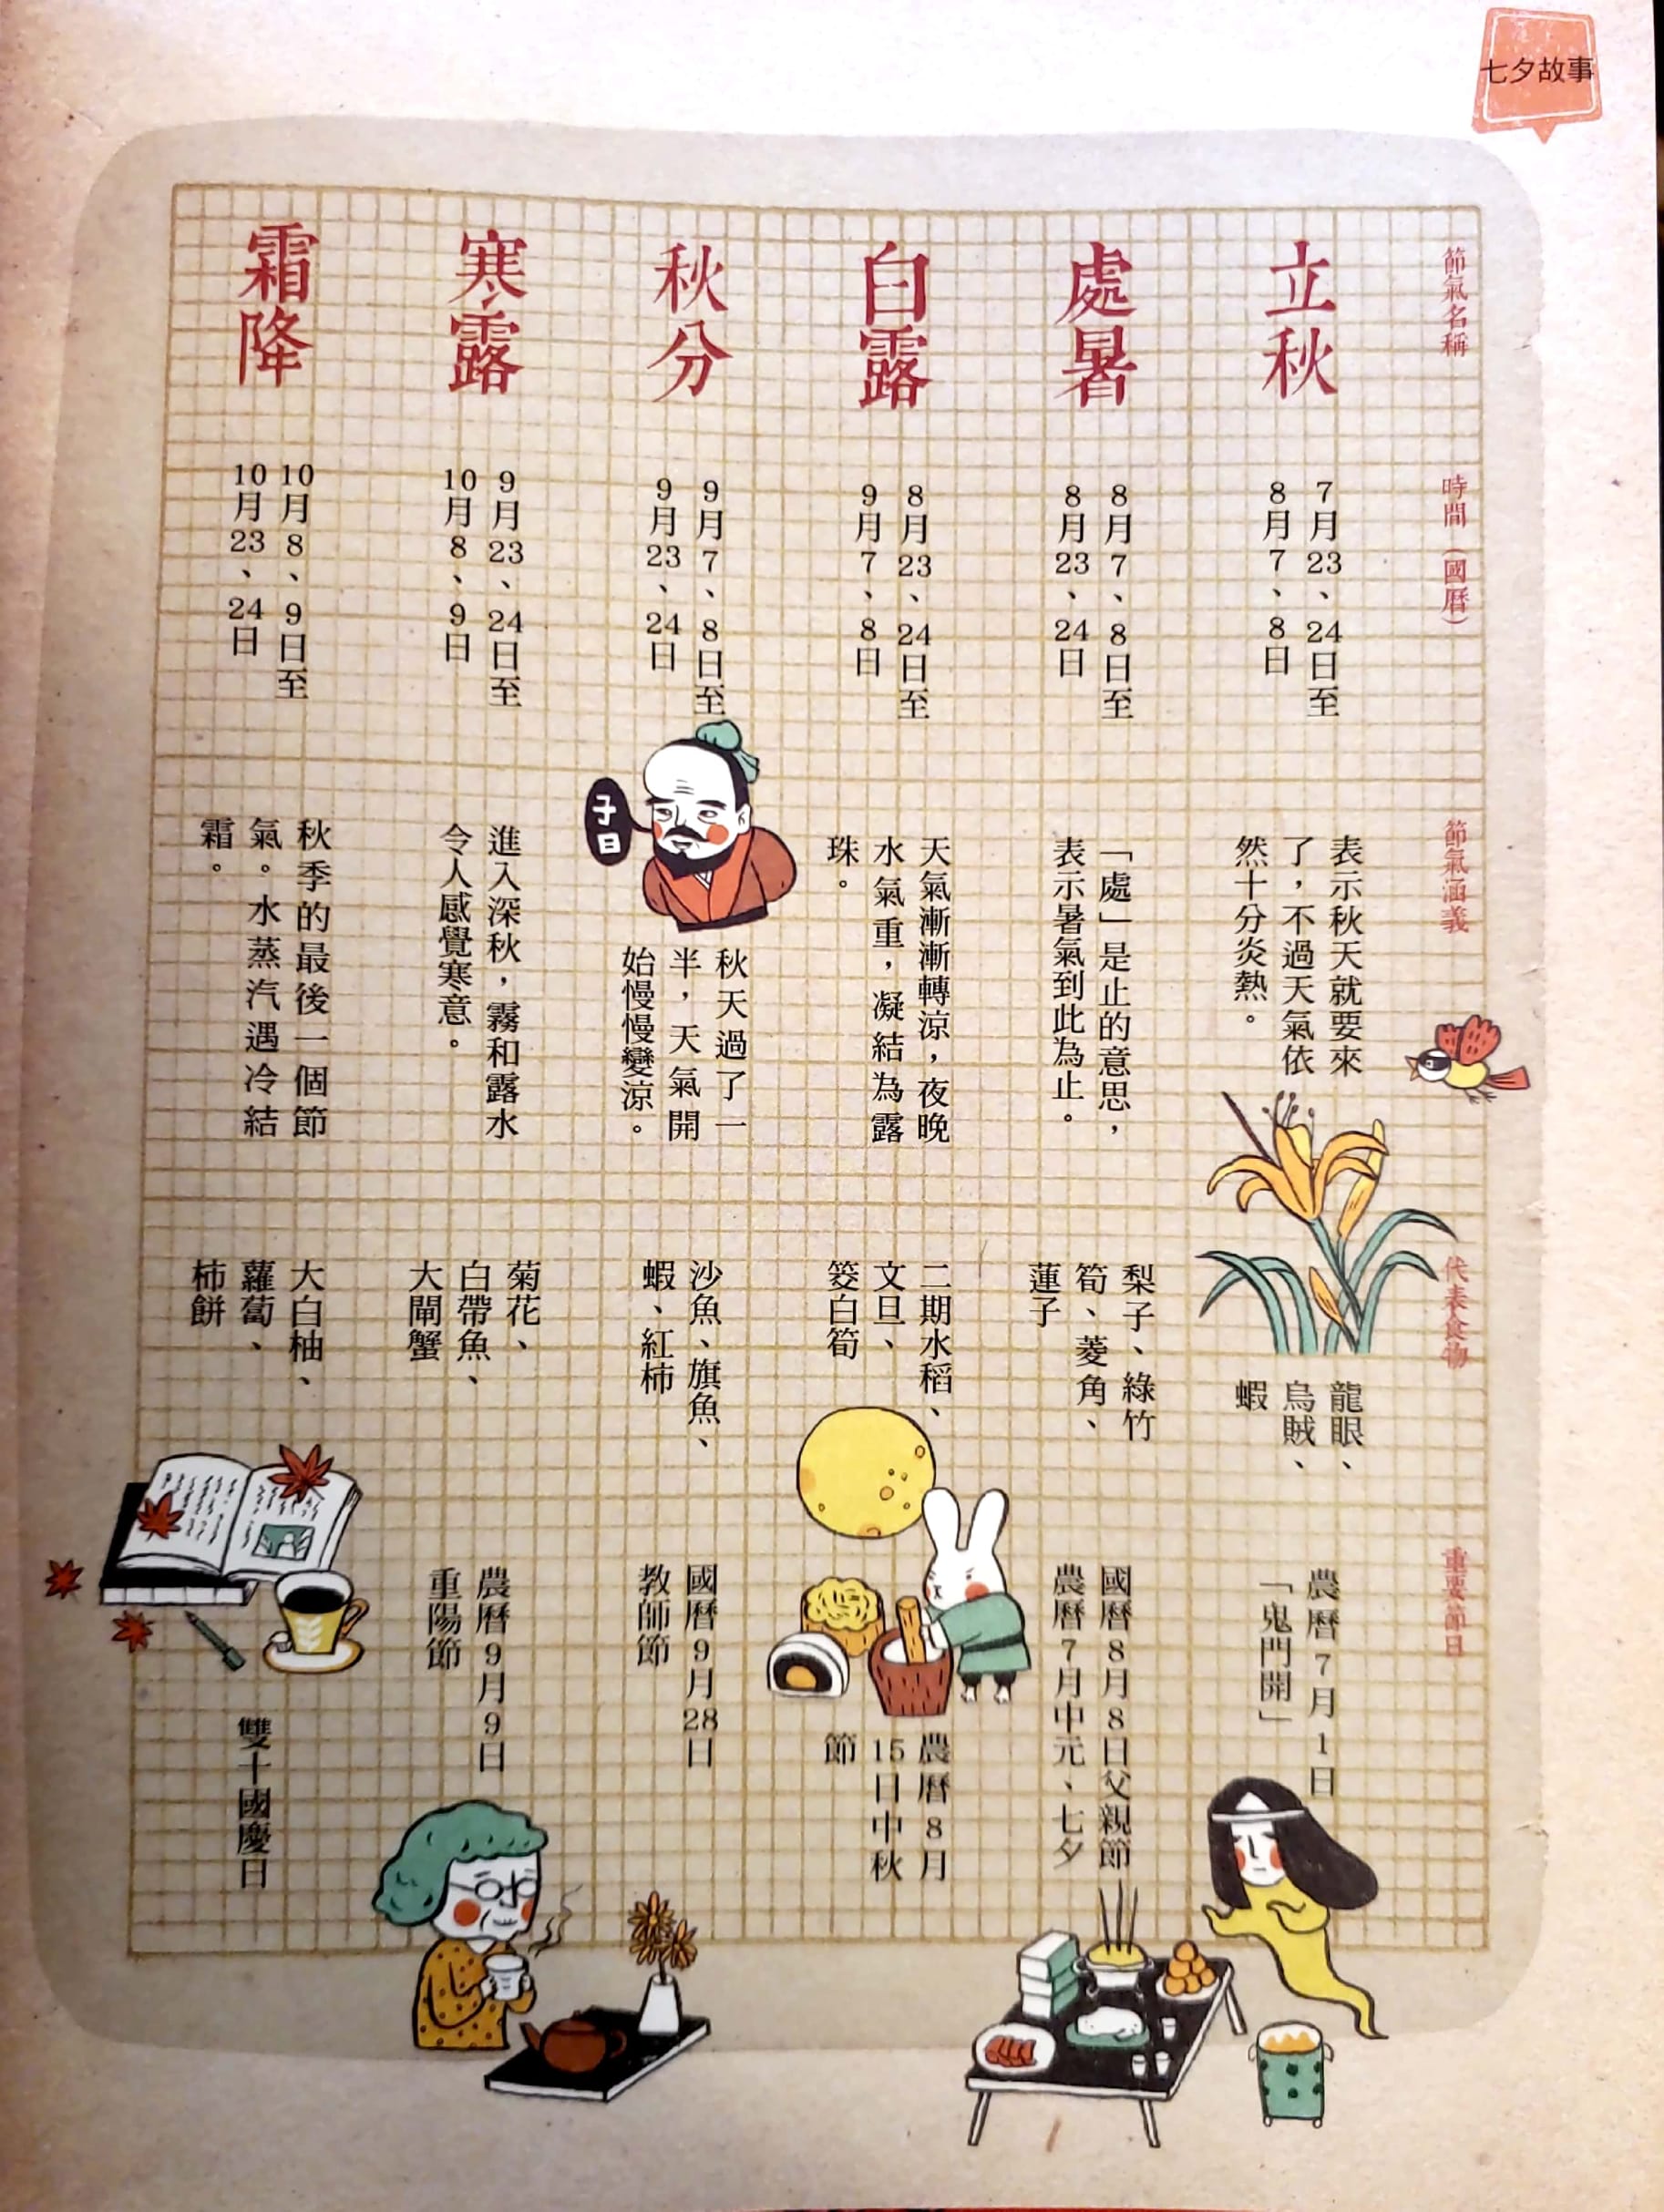 七夕故事
節氣名稱
時間（國曆）
節氣涵義
代表食物
重要節日
立秋
7月23、24日至
8月7、8日
表示秋天就要來
了，不過天氣依
然十分炎熱。
龍眼、
烏賊、
蝦
農曆7月1日
「鬼門開」
處暑
8月7、8日至
8月23、24日
「處」是止的意思，
表示暑氣到此為止。
梨子、綠竹
筍、菱角、
蓮子
國曆8月8日父親節
農曆7月中元、七夕
白露
8月23、24日至
9月7、8日
天氣漸漸轉涼，夜晚
水氣重，凝結為露
珠。
二期水稻、
文旦、
筊白筍
農曆8月
15日中秋
節
秋分
9月7、8日至
9月23、24日
子曰
秋天過了一
半，天氣開
始慢慢變涼。
沙魚、旗魚、
蝦、紅柿
國曆9月28日
教師節
寒露
9月23、24日至
10月8、9日
進入深秋，霧和露水
令人感覺寒意。
菊花、
白帶魚、
大閘蟹
農曆9月9日
重陽節
霜降
10月8、9日至
10月23、24日
秋季的最後一個節
氣。水蒸汽遇冷結
霜。
大白柚、
蘿蔔、
柿餅
雙十國慶日